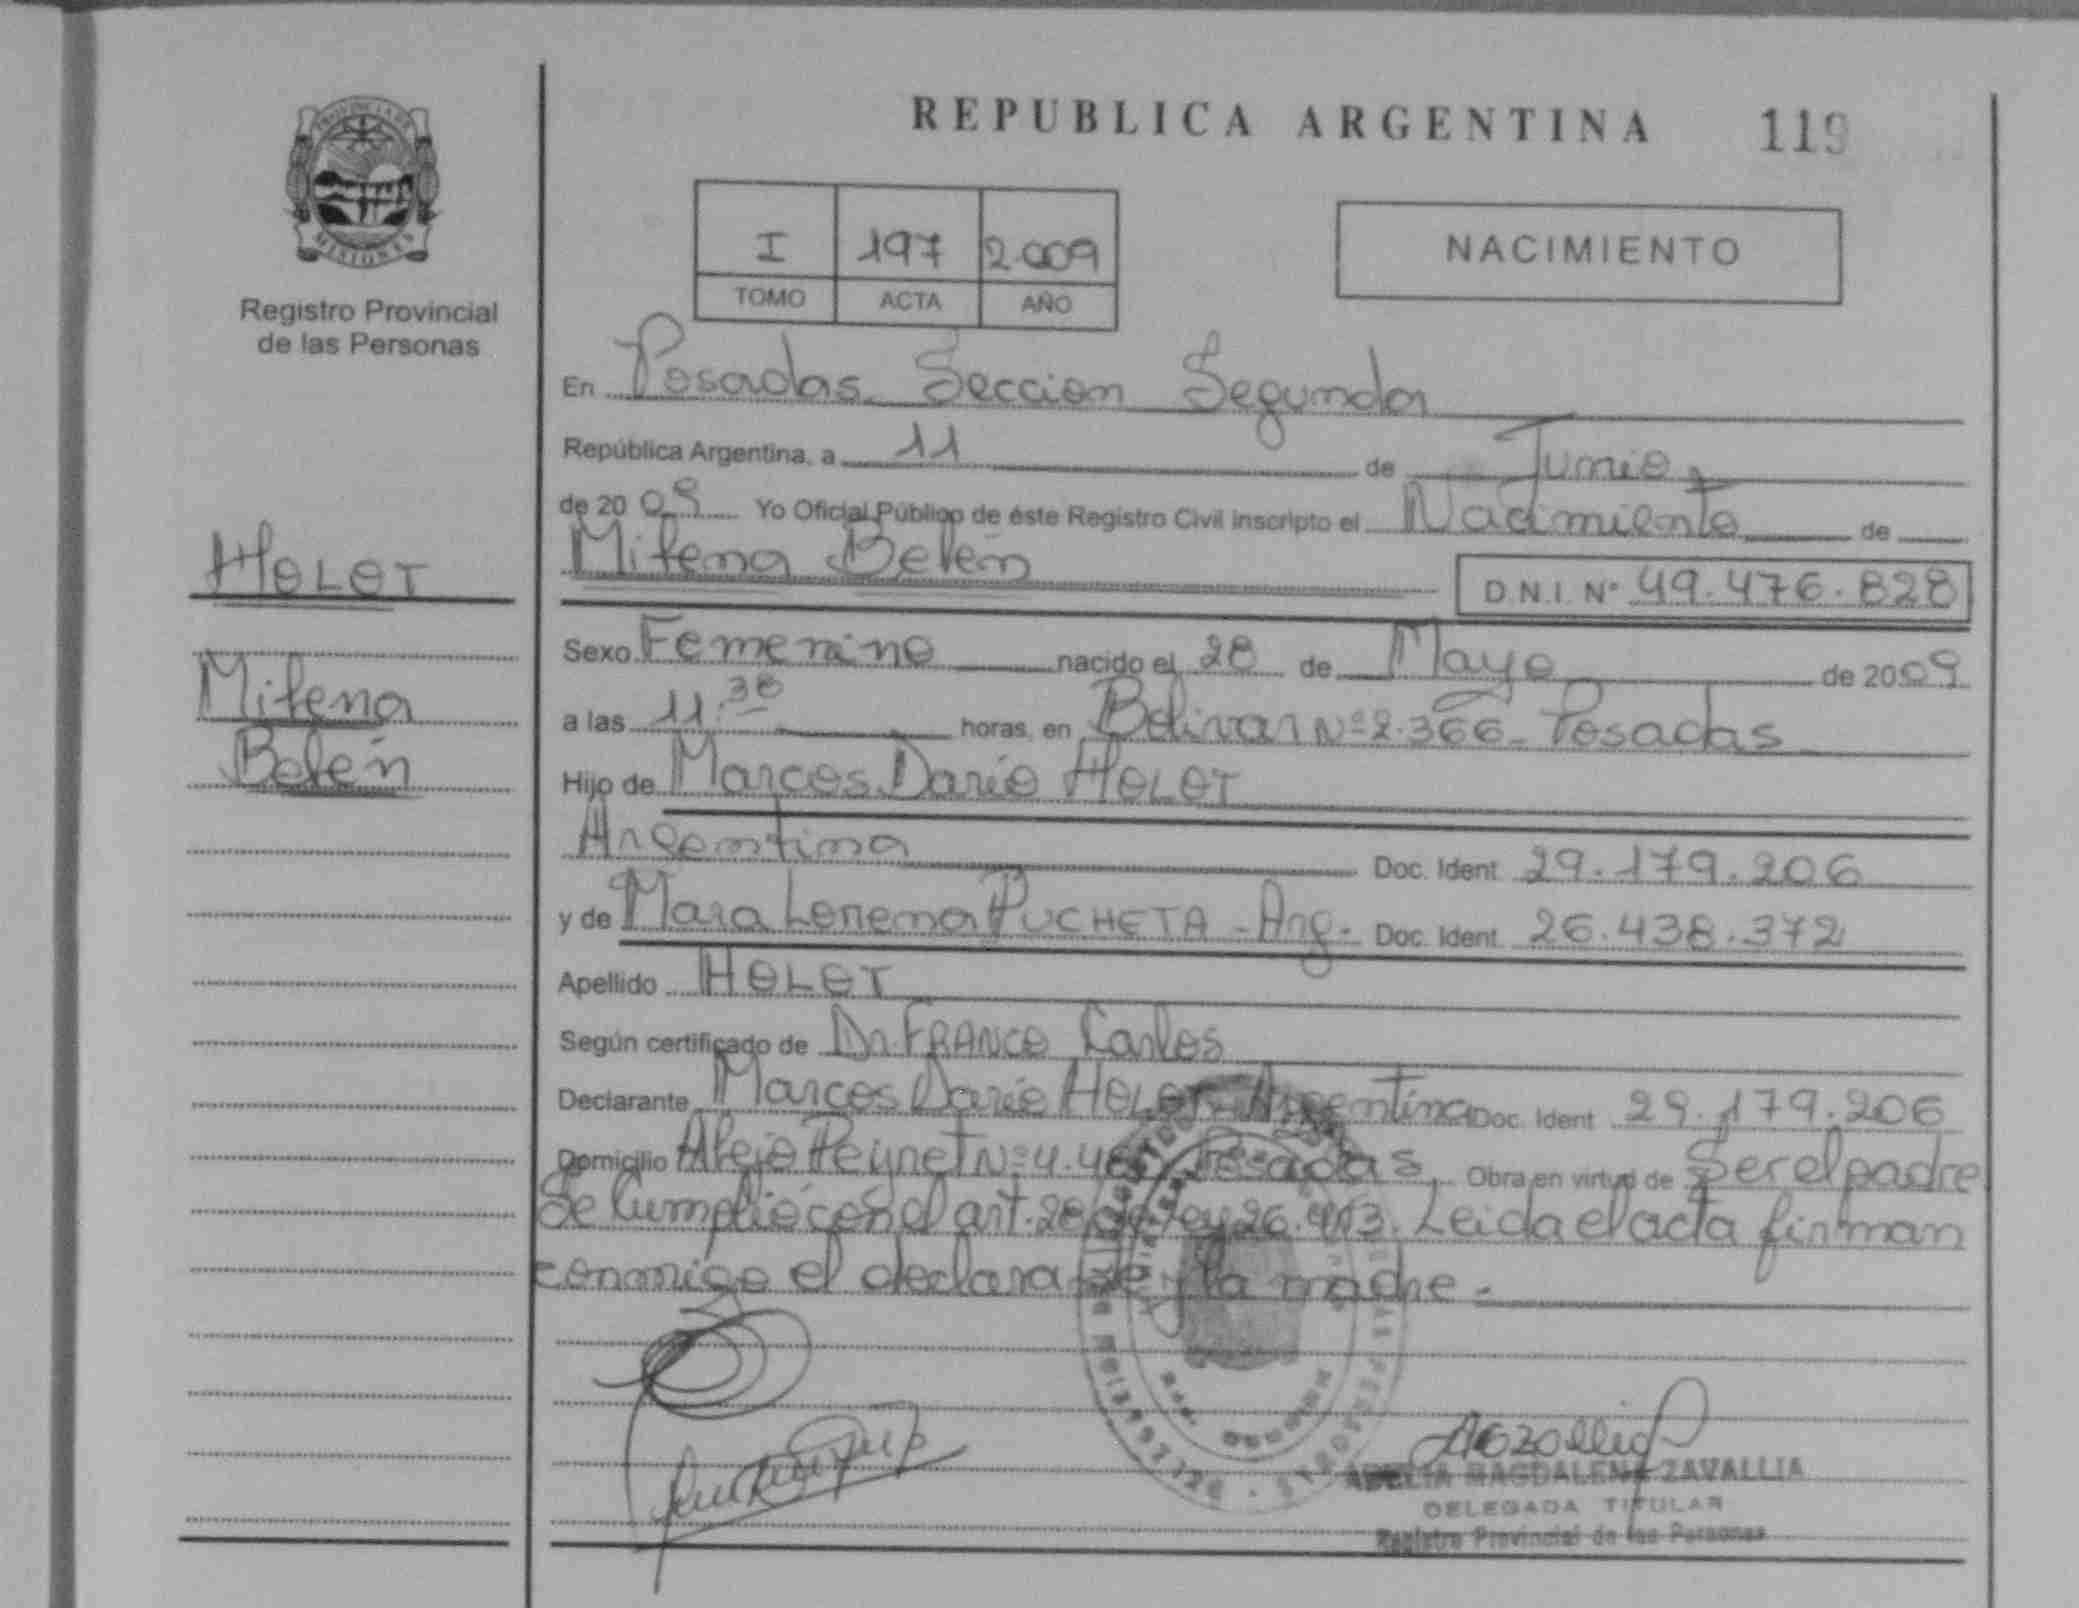 REPUBLICA ARGENTINA 119
PROVINCIA DE
MISIONES
Registro Provincial
de las Personas
I 197 2.009
TOMO ACTA AÑO
NACIMIENTO
En Posadas Sección Segunda
República Argentina, a 11 de Junio
de 2009 Yo Oficial Público de éste Registro Civil inscripto el Nacimiento de
Milena Belén D.N.I. Nº 49.476.828
HOLOT
Milena
Belén
Sexo Femenino nacido el 28 de Mayo de 2009
a las 11.30 horas, en Bolivar Nº 2.366 - Posadas
Hijo de Marcos Darío HOLOT
Argentina Doc. Ident 29.179.206
y de Mara Lorena PUCHETA - Arg. Doc. Ident 26.438.372
Apellido HOLOT
Según certificado de Dr. FRANCO Carlos
Declarante Marcos Darío HOLOT Argentina Doc. Ident 29.179.206
Domicilio Alejo Peyret Nº Posadas Obra en virtud de Ser el padre
Se Cumplió con el art. Ley 26.413. Leida el acta firman
conmigo el declarante y la madre.-
ADELIA MAGDALENA ZAVALLIA
DELEGADA TITULAR
Registro Provincial de las Personas